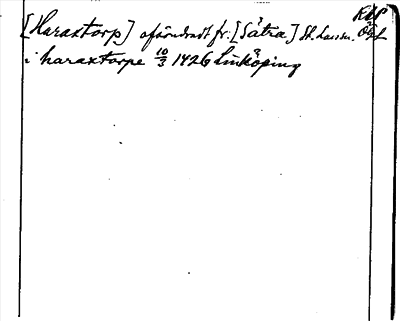 [Haraxtorp] oförändradt fr. [Sätra] St. Lassm. Ög L
i haraxtorpe 10/3 1426 Linköping